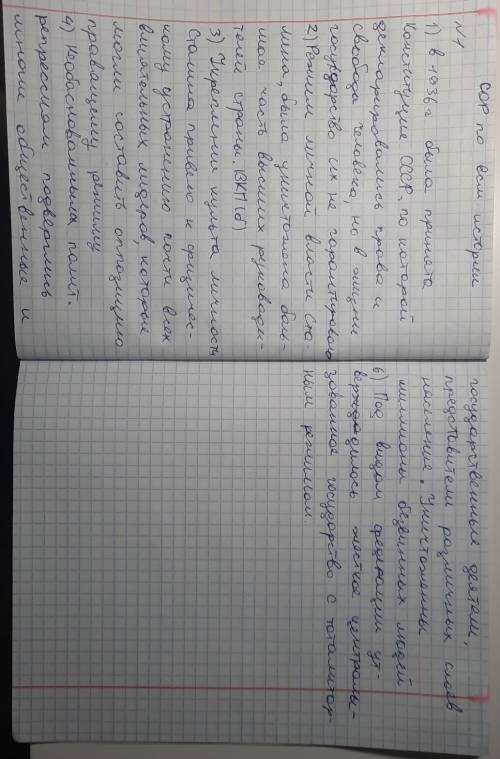 СОР по всем истории
№1
1) В 1936г была принята
Конституция СССР, по которой
декларировались права и
свобода человека, но в жизни
государство их не гарантировало
2) Режим личной власти Ста-
лина, была уничтожена боль-
шая часть высших руководи-
телей страны. ВКП(б)
3) Укрепления культа личности
Сталина привело к физичес-
кому устранению почти всех
влиятельных лидеров, которые
могли составить оппозицию
правящему режиму
4) Необоснованным полит.
репрессиям подверглись
многие общественные и
государственные деятели,
представители различных слоев
население. Уничтоженны
миллионы безвинных людей
6) Под видом федерации ут-
верждалось жесткое централи-
зованное государство с тоталитар-
ным режимом